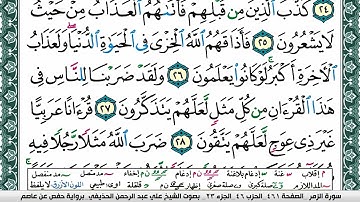 ٢٤ كَذَّبَ ٱلَّذِينَ مِن قَبْلِهِمْ فَأَتَىٰهُمُ ٱلْعَذَابُ مِنْ حَيْثُ
لَا يَشْعُرُونَ ٢٥ فَأَذَاقَهُمُ ٱللَّهُ ٱلْخِزْىَ فِى ٱلْحَيَوٰةِ ٱلدُّنْيَا وَلَعَذَابُ
ٱلْأَخِرَةِ أَكْبَرُ لَوْ كَانُوا۟ يَعْلَمُونَ ٢٦ وَلَقَدْ ضَرَبْنَا لِلنَّاسِ فِى
هَٰذَا ٱلْقُرْءَانِ مِن كُلِّ مَثَلٍ لَّعَلَّهُمْ يَتَذَكَّرُونَ ٢٧ قُرْءَانًا عَرَبِيًّا
غَيْرَ ذِى عِوَجٍ لَّعَلَّهُمْ يَتَّقُونَ ٢٨ ضَرَبَ ٱللَّهُ مَثَلًا رَّجُلًا فِيهِ
سورة الزمر الصفحة ٤٦١ الحزب ٤٦ الجزء ٢٣ بصوت الشيخ علي عبد الرحمن الحذيفي برواية حفص عن عاصم